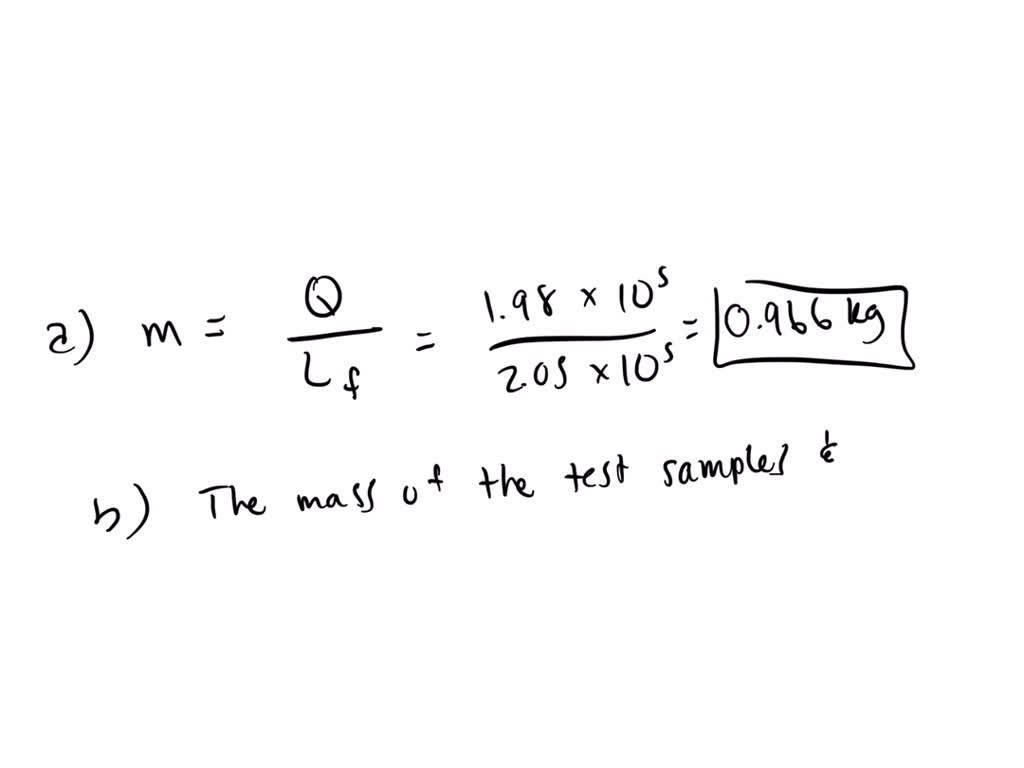 a) m = Q / L_f = 1.98 × 10^5 / 2.05 × 10^5 = 0.966 kg
b) The mass of the test samples &